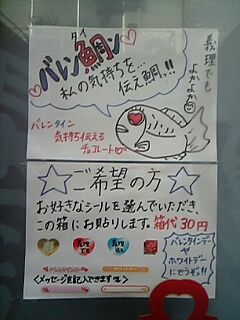 バレン鯛ン
タイ
私の気持ちを…
伝え鯛っ!!
義理でも
よかよか
バレンタイン
気持ち伝える
チョコレート
☆ご希望の方☆
お好きなシールを選んでいただき
この箱にお貼りします。箱代30円
バレンタインデー
や
ホワイトデー
にどうぞ!!
バレンタインデー
ホワイトデー
<メッセージ記入できます>